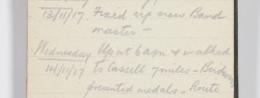 13/11/17. Fixed up new Band
master —
Wednesday Up at 6am & walked
14/11/17 to Cassell 7 miles —
presented medals — Route